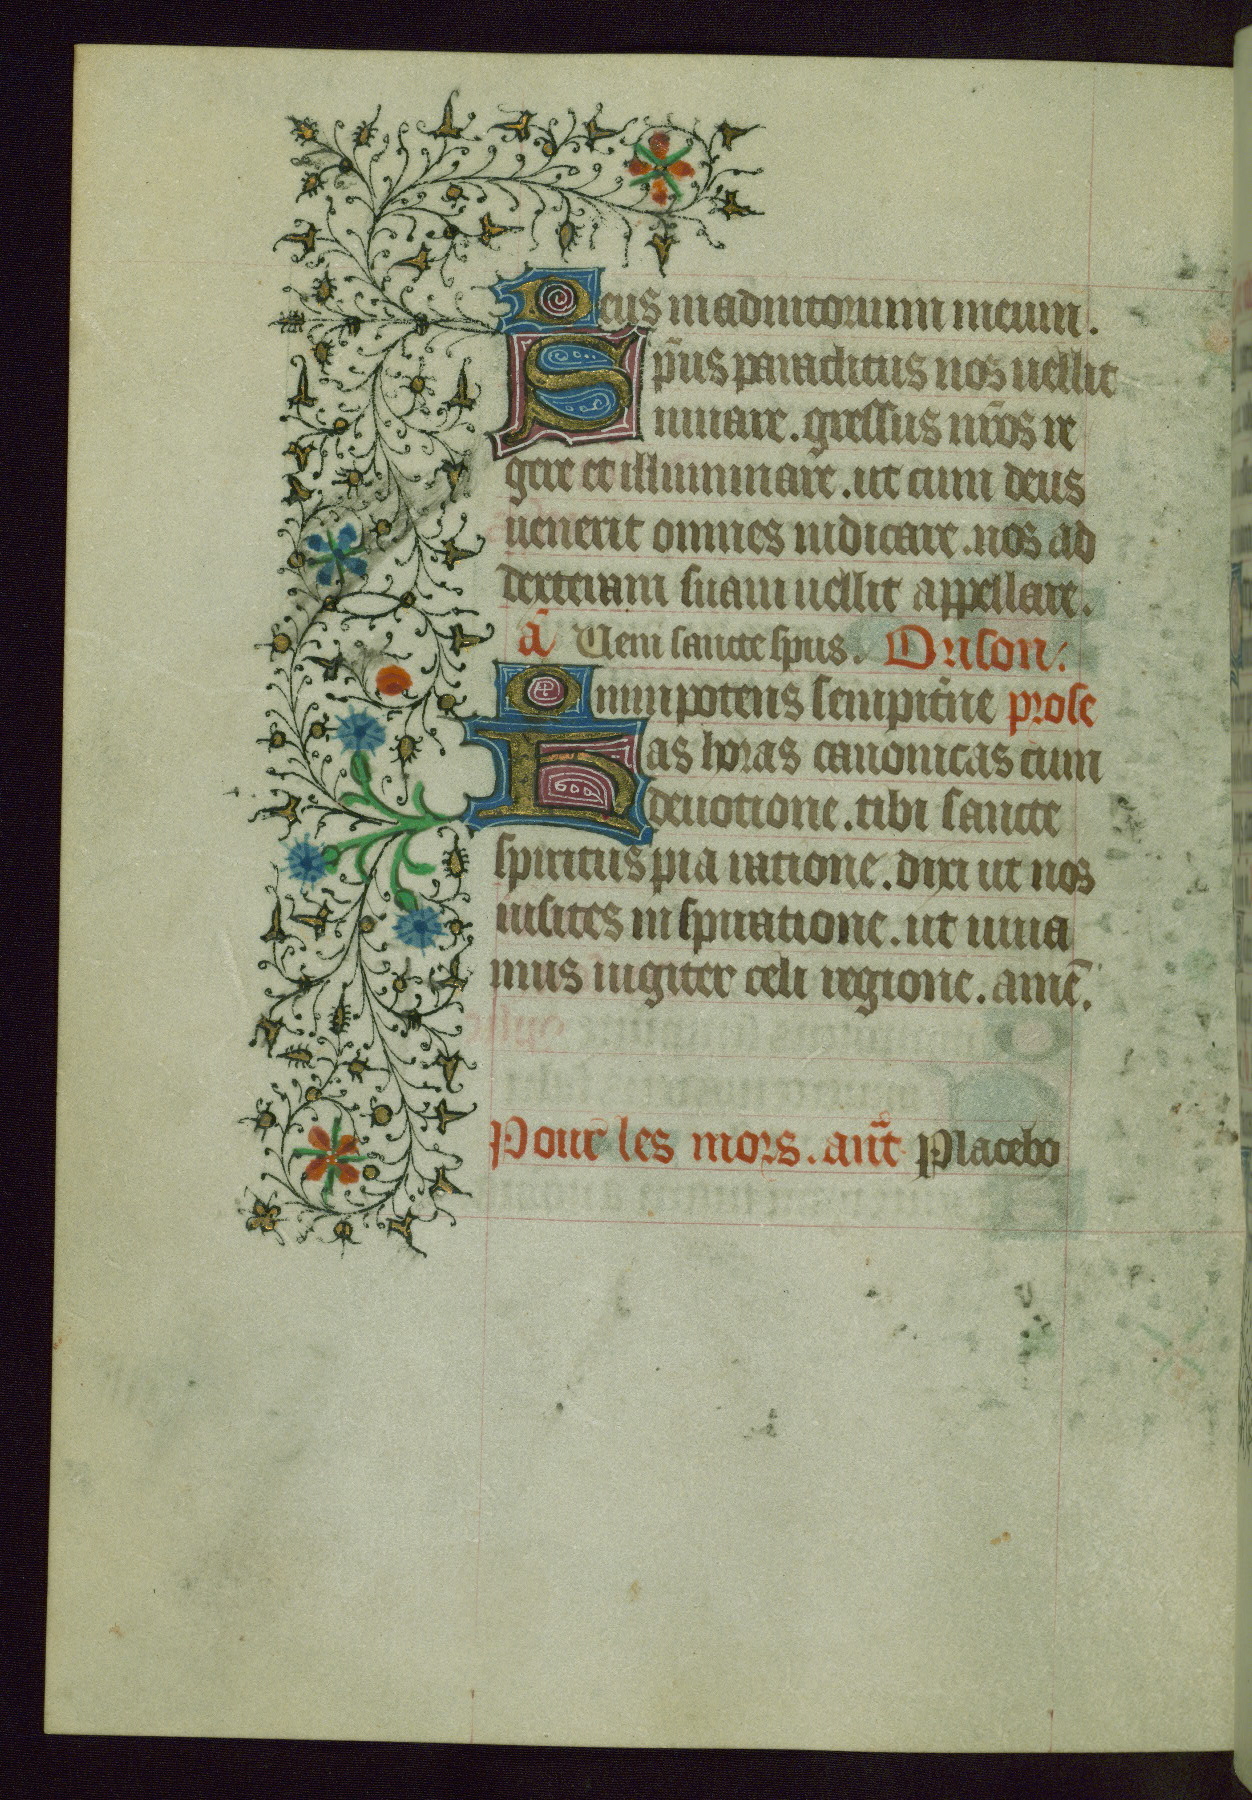 Deus in adiutorium meum.
Sp̄us paraclitus nos uellit
iuuare. gressus nr̄os re
gere et illuminare. ut cum deus
uenerit omnes iudicare. nos ad
dexteram suam uellit appellare.
ā Ueni sancte spūs. Orison:
Omnipotens sempit̄ne prose
Has horas canonicas cum
deuotione. tibi sancte
spiritus pia ratione. dixi ut nos
uisites inspiratione. ut uiua
mus iugiter celi regione. amē.
Pour les mors. an̄t Placebo